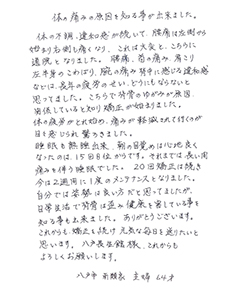 体の痛みの原因を知る事が出来ました。
体の不調、違和感が続いて、腰痛は左側から
始まり右側も痛くなり、これは大変と、こちらに
通院となりました。腰痛、首の痛み、肩こり
左半身のこわばり、腕の痛み背中に感じる違和感
などは、長年の疲労のせい、どうにもならないと
思ってました。こちらで背骨のゆがみが原因、
関係していると知り矯正が始まりました。
体の疲労がとれ始め、痛みが軽減されて行くのが
日を感じられ驚きました。
睡眠も熟睡出来、朝の目覚めは心地良く
なったのは、15回目位からです。それまでは長い間
痛みを伴う睡眠でした。20回矯正は続き
今は2週間に1度のメンテナンスとなりました。
自分では姿勢は良い方だと思ってましたが、
日常生活で背骨は歪み健康を害している事を
知る事も出来ました。ありがとうございます。
これからも、矯正を続け元気な毎日を送りたいと
思います。八戸整体館様、これからも
よろしくお願いします。
八戸市 主婦 64才